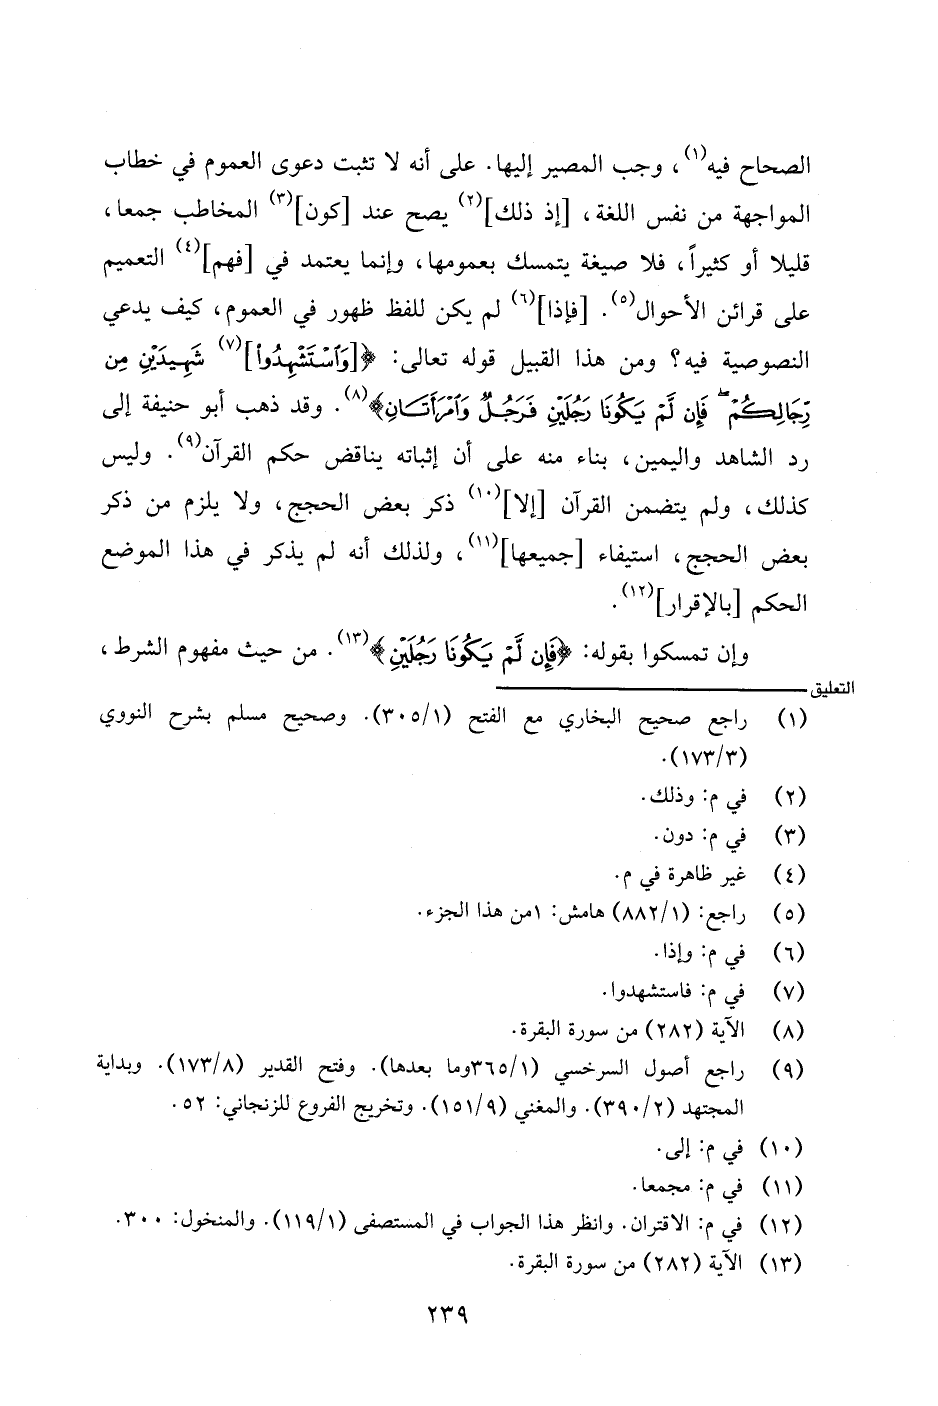 الصحاح فيه(١)، وجب المصير إليها. على أنه لا تثبت دعوى العموم في خطاب
المواجهة من نفس اللغة، [إذ ذلك](٢) يصح عند [كون](٣) المخاطب جمعا،
قليلا أو كثيراً، فلا صيغة يتمسك بعمومها، وإنما يعتمد في [فهم](٤) التعميم
على قرائن الأحوال(٥). [فإذا](٦) لم يكن للفظ ظهور في العموم، كيف يدعي
النصوصية فيه؟ ومن هذا القبيل قوله تعالى: ﴿[وَٱسۡتَشۡهِدُواْ](٧) شَهِيدَيۡنِ مِن
رِّجَالِكُمۡۖ فَإِن لَّمۡ يَكُونَا رَجُلَيۡنِ فَرَجُلٞ وَٱمۡرَأَتَانِ﴾(٨). وقد ذهب أبو حنيفة إلى
رد الشاهد واليمين، بناء منه على أن إثباته يناقض حكم القرآن(٩). وليس
كذلك، ولم يتضمن القرآن [إلا](١٠) ذكر بعض الحجج، ولا يلزم من ذكر
بعض الحجج، استيفاء [جميعها](١١)، ولذلك أنه لم يذكر في هذا الموضع
الحكم [بالإقرار](١٢).
وإن تمسكوا بقوله: ﴿فَإِن لَّمۡ يَكُونَا رَجُلَيۡنِ﴾(١٣). من حيث مفهوم الشرط،
التعليق
(١) راجع صحيح البخاري مع الفتح (٣٠٥/١). وصحيح مسلم بشرح النووي
(١٧٣/٣).
(٢) في م: وذلك.
(٣) في م: دون.
(٤) غير ظاهرة في م.
(٥) راجع: (٨٨٢/١) هامش: ١من هذا الجزء.
(٦) في م: وإذا.
(٧) في م: فاستشهدوا.
(٨) الآية (٢٨٢) من سورة البقرة.
(٩) راجع أصول السرخسي (٣٦٥/١وما بعدها). وفتح القدير (١٧٣/٨). وبداية
المجتهد (٣٩٠/٢). والمغني (١٥١/٩). وتخريج الفروع للزنجاني: ٥٢.
(١٠) في م: إلى.
(١١) في م: مجمعا.
(١٢) في م: الاقتران. وانظر هذا الجواب في المستصفى (١١٩/١). والمنخول: ٣٠٠.
(١٣) الآية (٢٨٢) من سورة البقرة.
٢٣٩